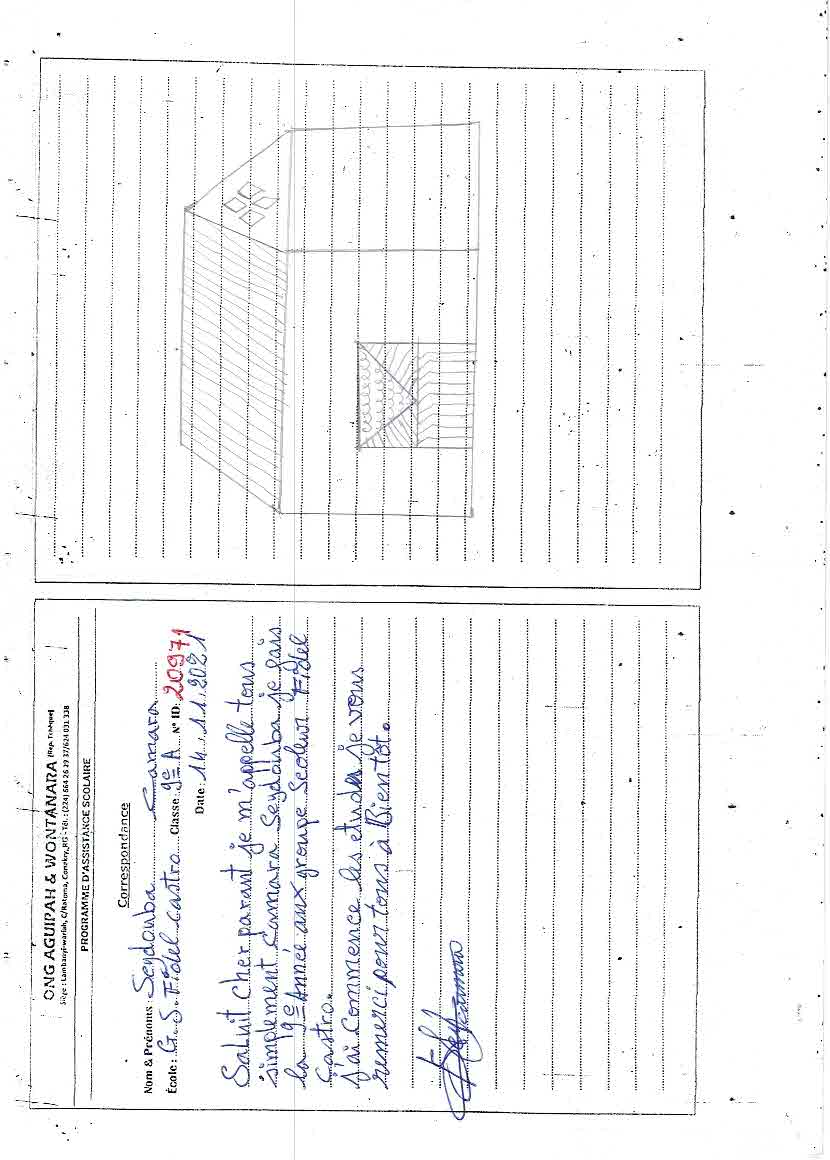 ONG AGUIPAH & WONTANARA (Rép. Tchèque)
Siège : Lambanyi-warriah, C/Ratoma, Conakry, RG - Tél. : (224) 664 26 29 37/624 031 338
PROGRAMME D'ASSISTANCE SCOLAIRE
Correspondance
Nom & Prénoms : Seydouba Camara
École : G.S. Fidel Castro Classe : 9e A N° ID: 20971
Date : 14.11.2021
Saluit cher parant je m'appelle tous
simplement Camara Seydouba je fais
la 9e Année aux groupe Scoleur Fidel
Castro.
J'ai Commence les etudes je vous
remerci pour tous à Bientôt.